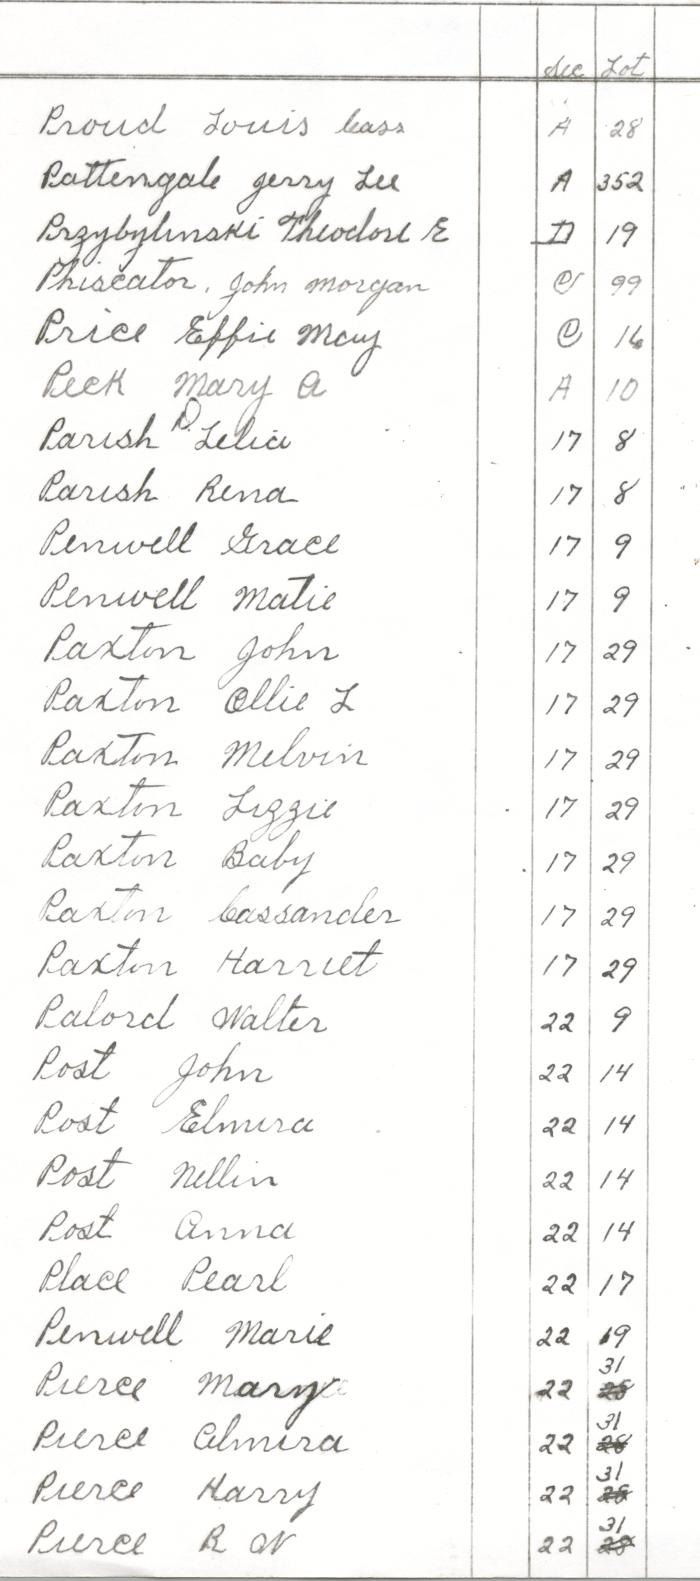 Sec Lot
Proud Louis Cass A 28
Pattengale Jerry Lee A 352
Przybylinski Theodore E D 19
Phiscator, John Morgan C 99
Price Effie May C 16
Peck Mary A A 10
Parish D. Lelia 17 8
Parish Rena 17 8
Penwell Grace 17 9
Penwell Matie 17 9
Paxton John 17 29
Paxton Ollie L 17 29
Paxton Melvin 17 29
Paxton Lizzie 17 29
Paxton Baby 17 29
Paxton Cassander 17 29
Paxton Harriet 17 29
Palord Walter 22 9
Post John 22 14
Post Elmira 22 14
Post Nellin 22 14
Post Anna 22 14
Place Pearl 22 17
Penwell Marie 22 19
Pierce Mary 22 31 28
Pierce Almira 22 31 28
Pierce Harry 22 31 28
Pierce R W 22 31 28